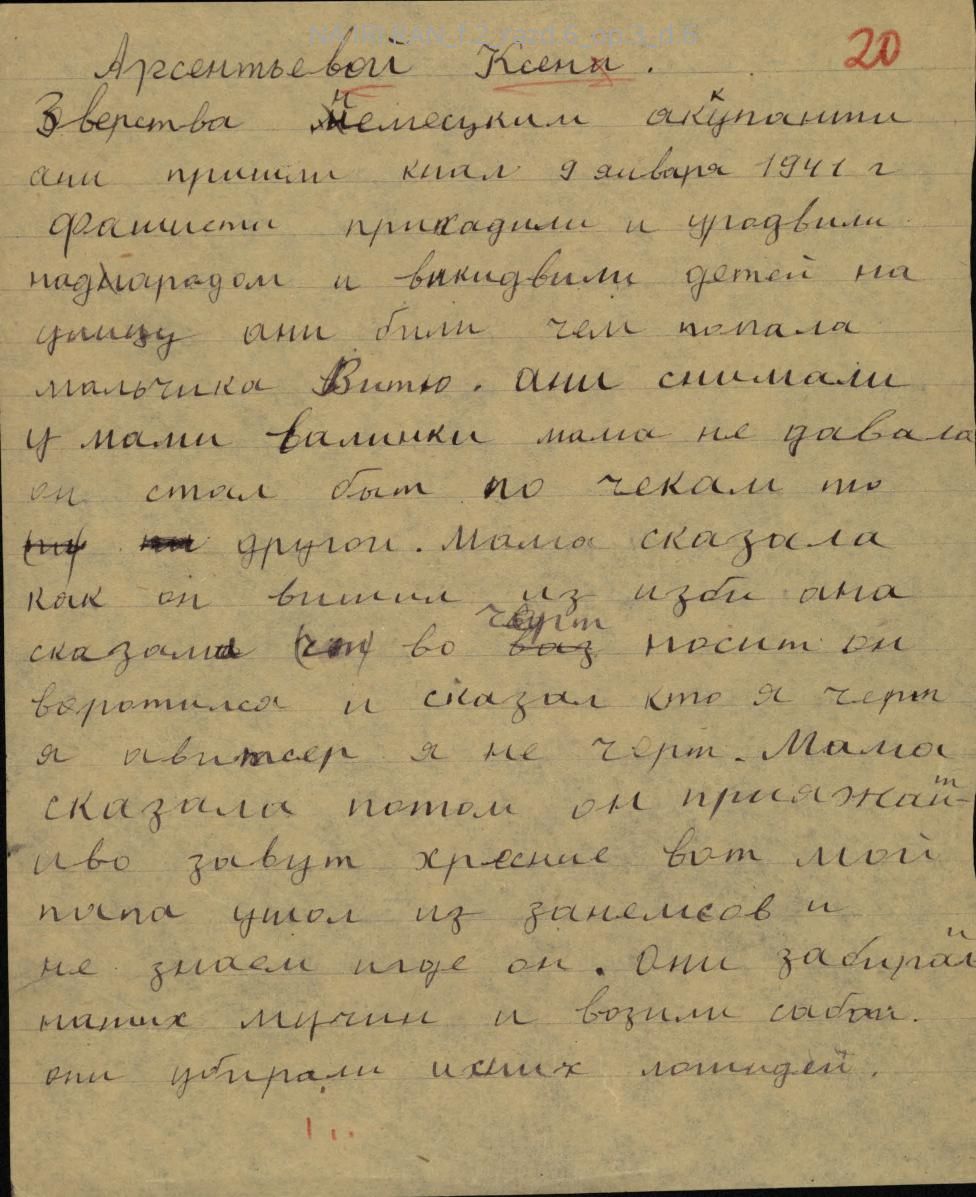 NA IRI RAN_f.2_razd.6_op.3_d.6
20
Арсентьевой Ксени.
Зверства немецким аккупанти
ани пришли кнам 9 января 1941 г
Фашисти прихадили и уродвили
наднародом и викидвили детей на
улицу ани били чем попала
мальчика Витю. ани снимали
у мами валинки мама не давала
он стал быт по чекам то
другои. Мама сказала
как он вишил из изби ана
сказала во черт носит он
воротился и сказал кто я черт
я авитсер я не черт. Мама
сказала потом он прияжает
иво завут хрение вот мой
папа ушол из занемсов и
не знаем игде он. Они забирали
наших мучин и возили сабои.
они убирали ихних лошидей.